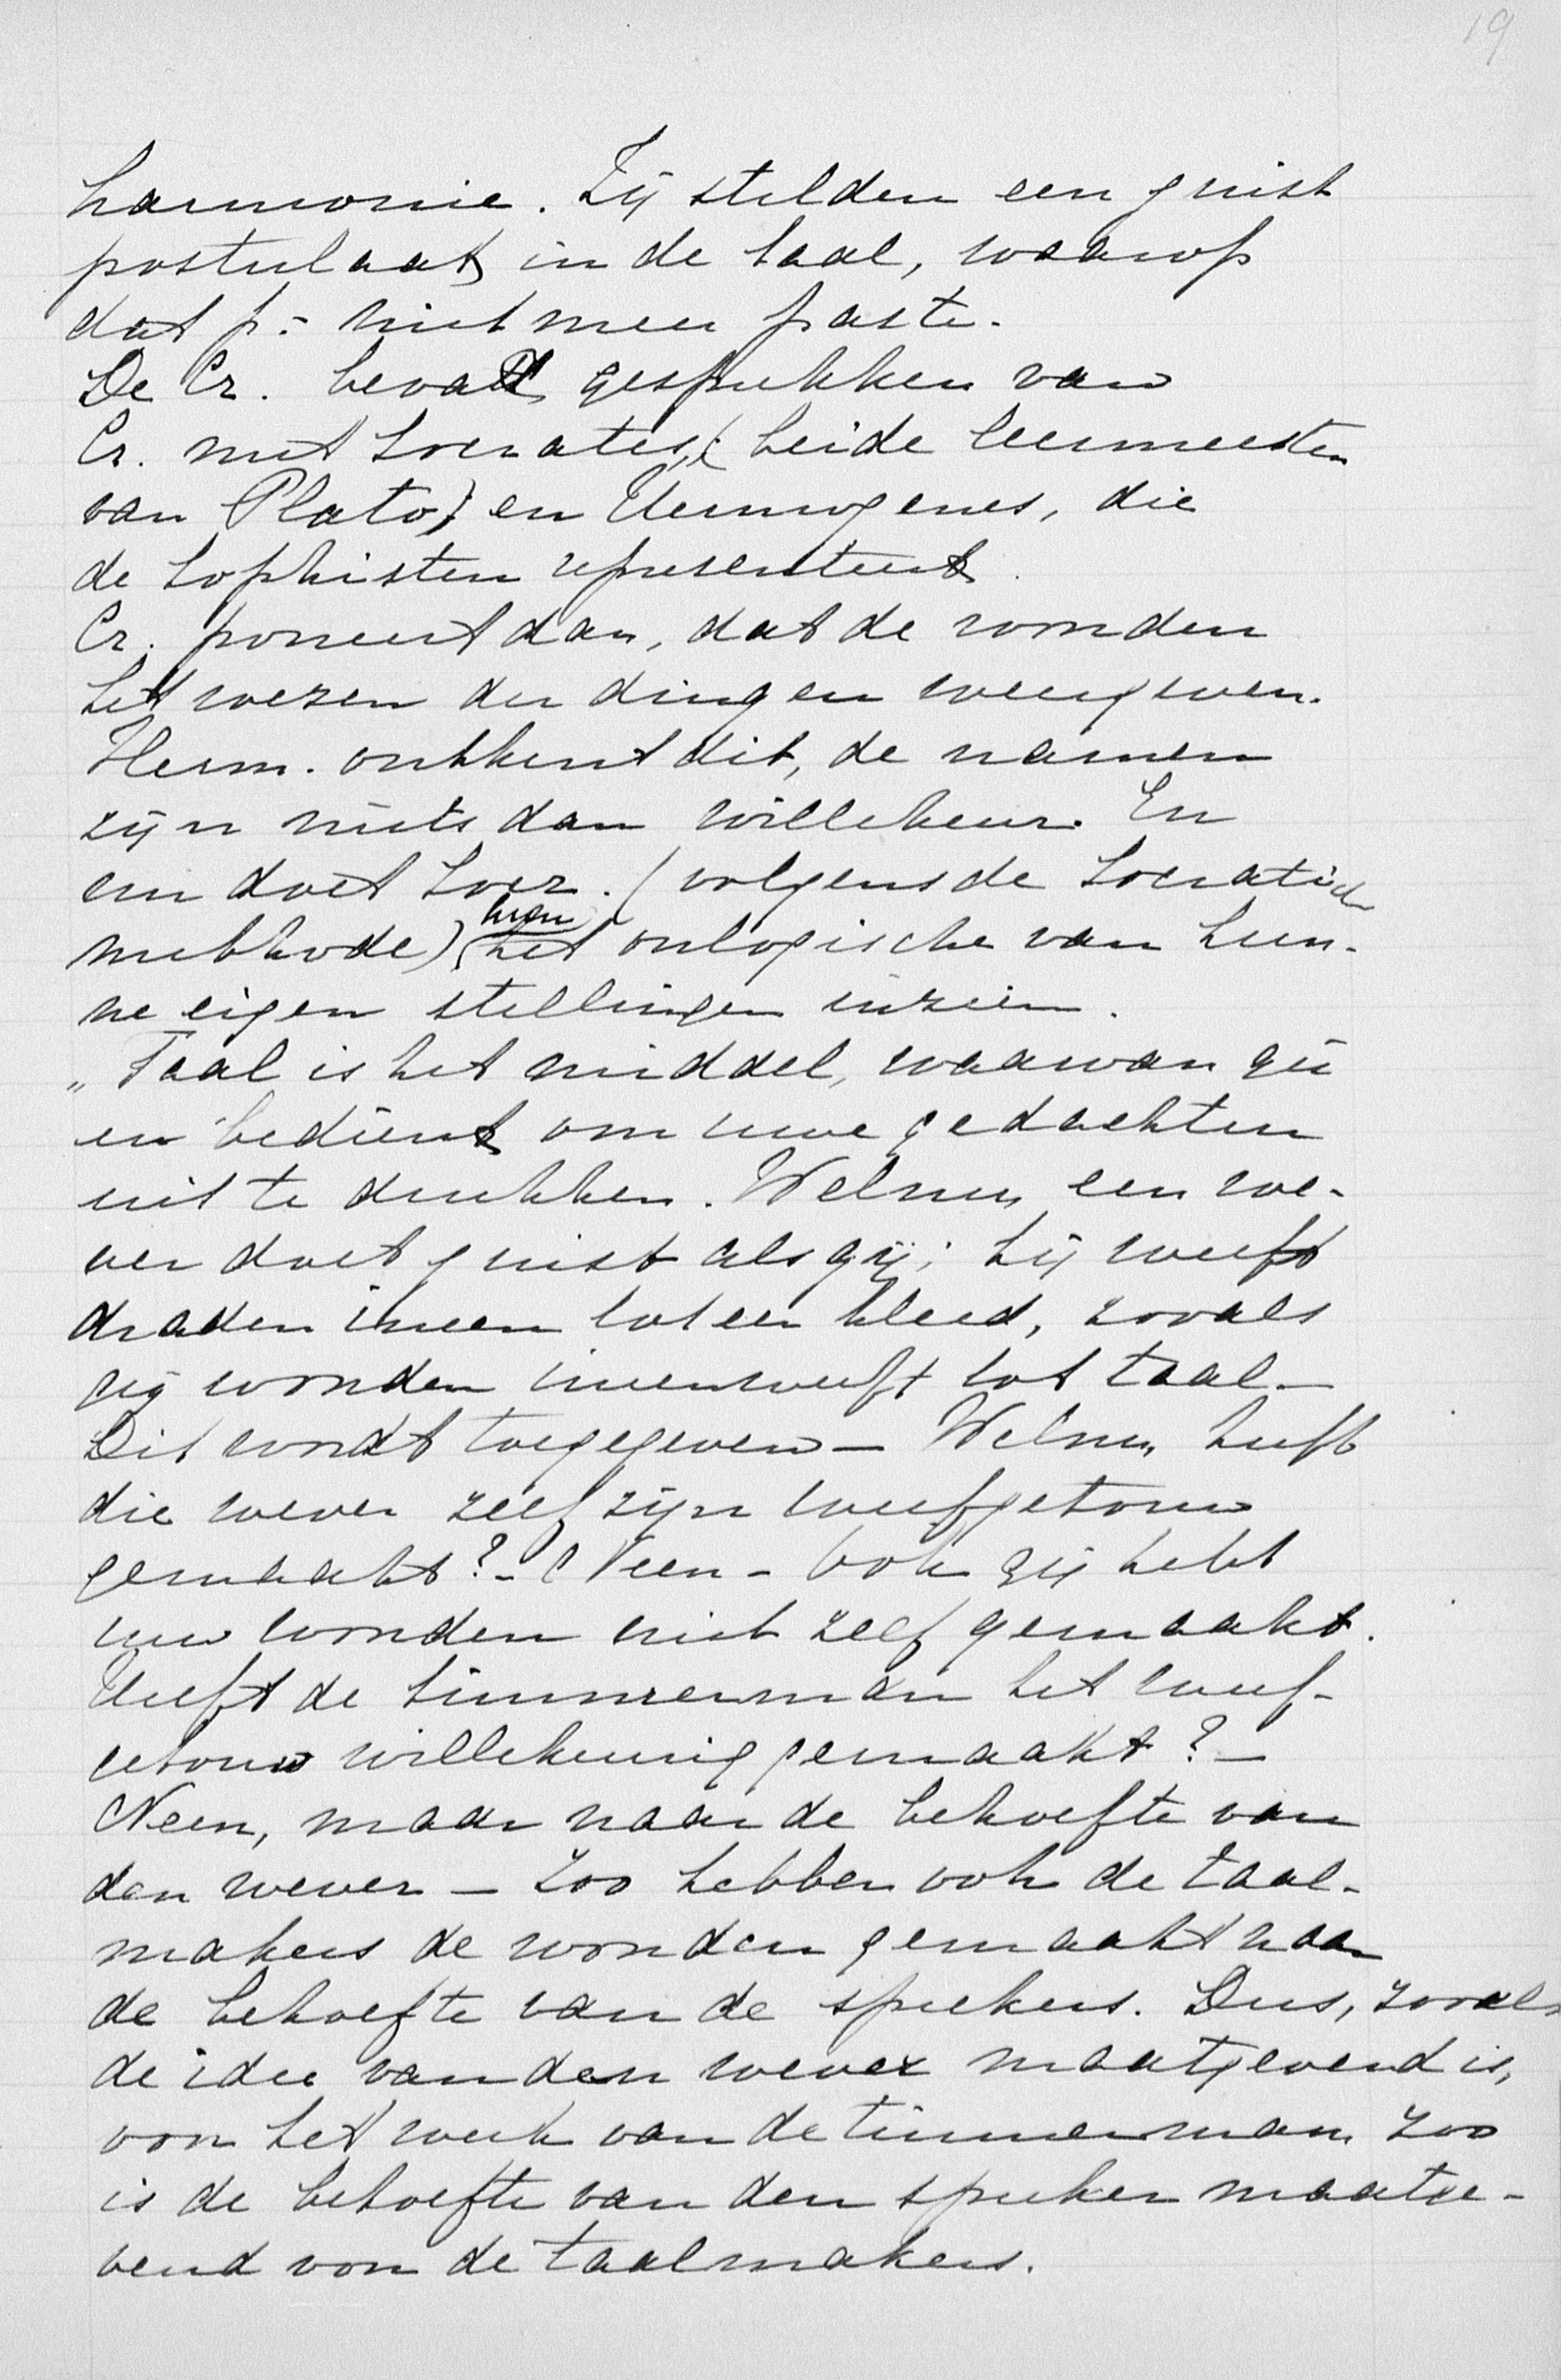 19
harmonie. Zij stelden een juist
postulaat in de taal, waarop
dat p.- niet meer paste.
De Cr. bevat gesprekken van
Cr. met Socrates, (beide leermeesters
van Plato) en Hermogenes, die
de Sophisten representeert.
Cr. poneert dan, dat de woorden
het wezen der dingen weergeven.
Herm. ontkent dit, de namen
zijn niets dan willekeur. En
nu doet Socr. (volgens de Socratische
methode) hen het onlogische van hun-
ne eigen stellingen inzien.
„Taal is het middel, waarvan gij
u bedient om uwe gedachten
uit te drukken. Welnu, een we-
ver doet juist als gij; hij weeft
draden ineen tot een kleed, zooals
gij woorden ineenweeft tot taal_
Dit wordt toegegeven_ Welnu, heeft
die wever zelf zijn weefgetouw
gemaakt?_ Neen_ Ook gij hebt
uw woorden niet zelf gemaakt.
Heeft de timmerman het weef-
getouw willekeurig gemaakt?_
Neen, maar naar de behoefte van
den wever_ Zoo hebben ook de taal-
makers de woorden gemaakt naar
de behoefte van de sprekers. Dus, zooals
de idee van den wever maatgevend is,
voor het werk van de timmerman, zoo
is de behoefte van den spreker maatge-
vend voor de taalmakers.